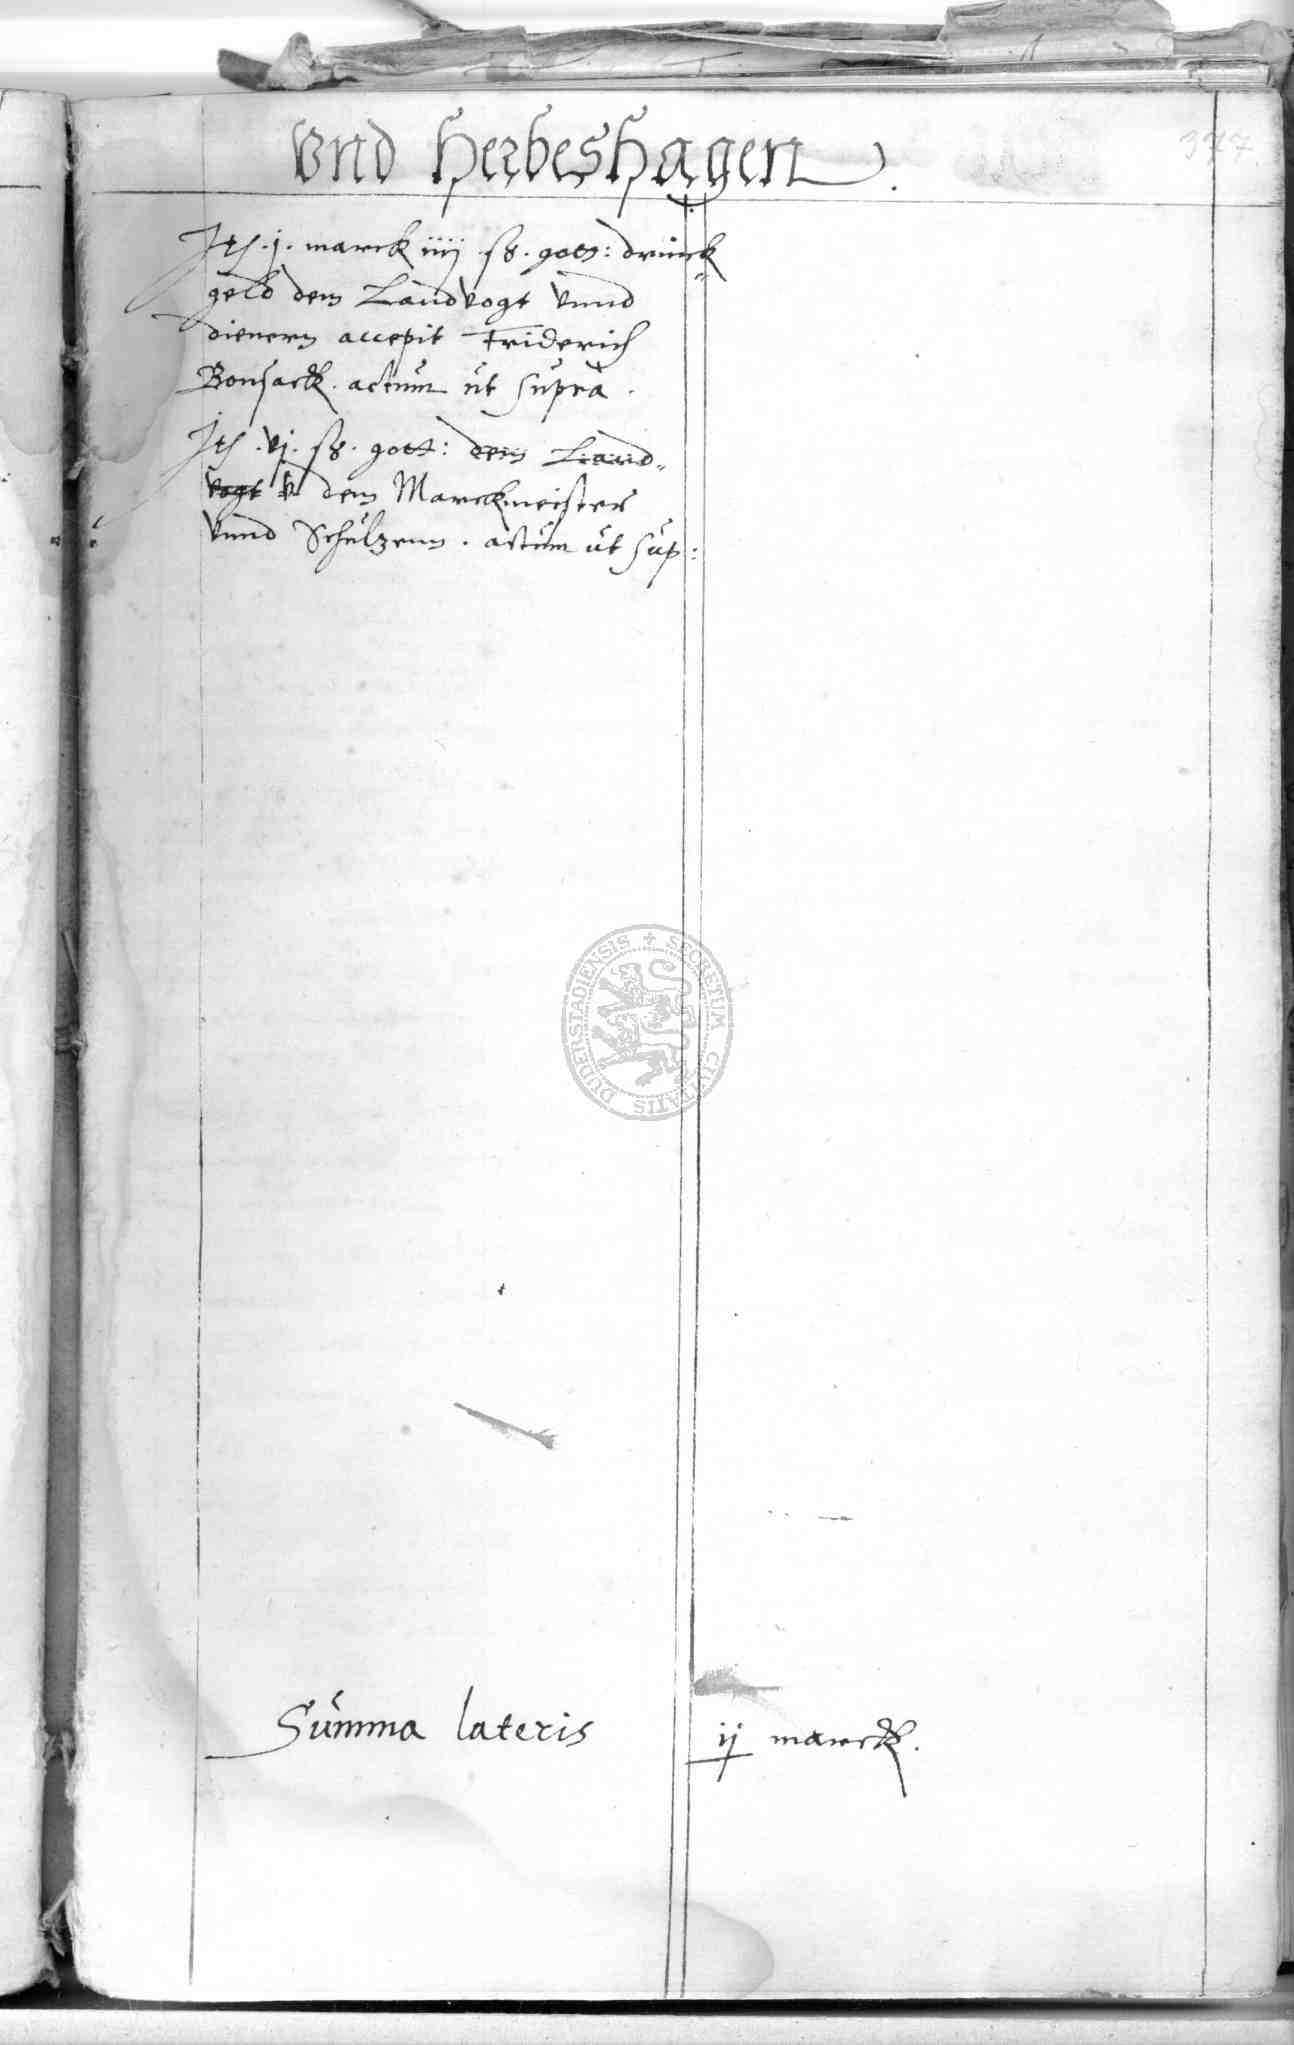 Vnd Herbeshagen.
377
Jt. j. marck iiij ß. gott: drinck
geld dem Landvogt vnnd
dienern accepit Friderich
Bonsack. actum ut supra.
Jt. vj. ß. gott: dem Land-
vogt v dem Marckmeister
vnnd Schulzenn. actum ut sup:
SECRETUM CIVITATIS DUDERSTADIENSIS
Summa lateris ij marck.